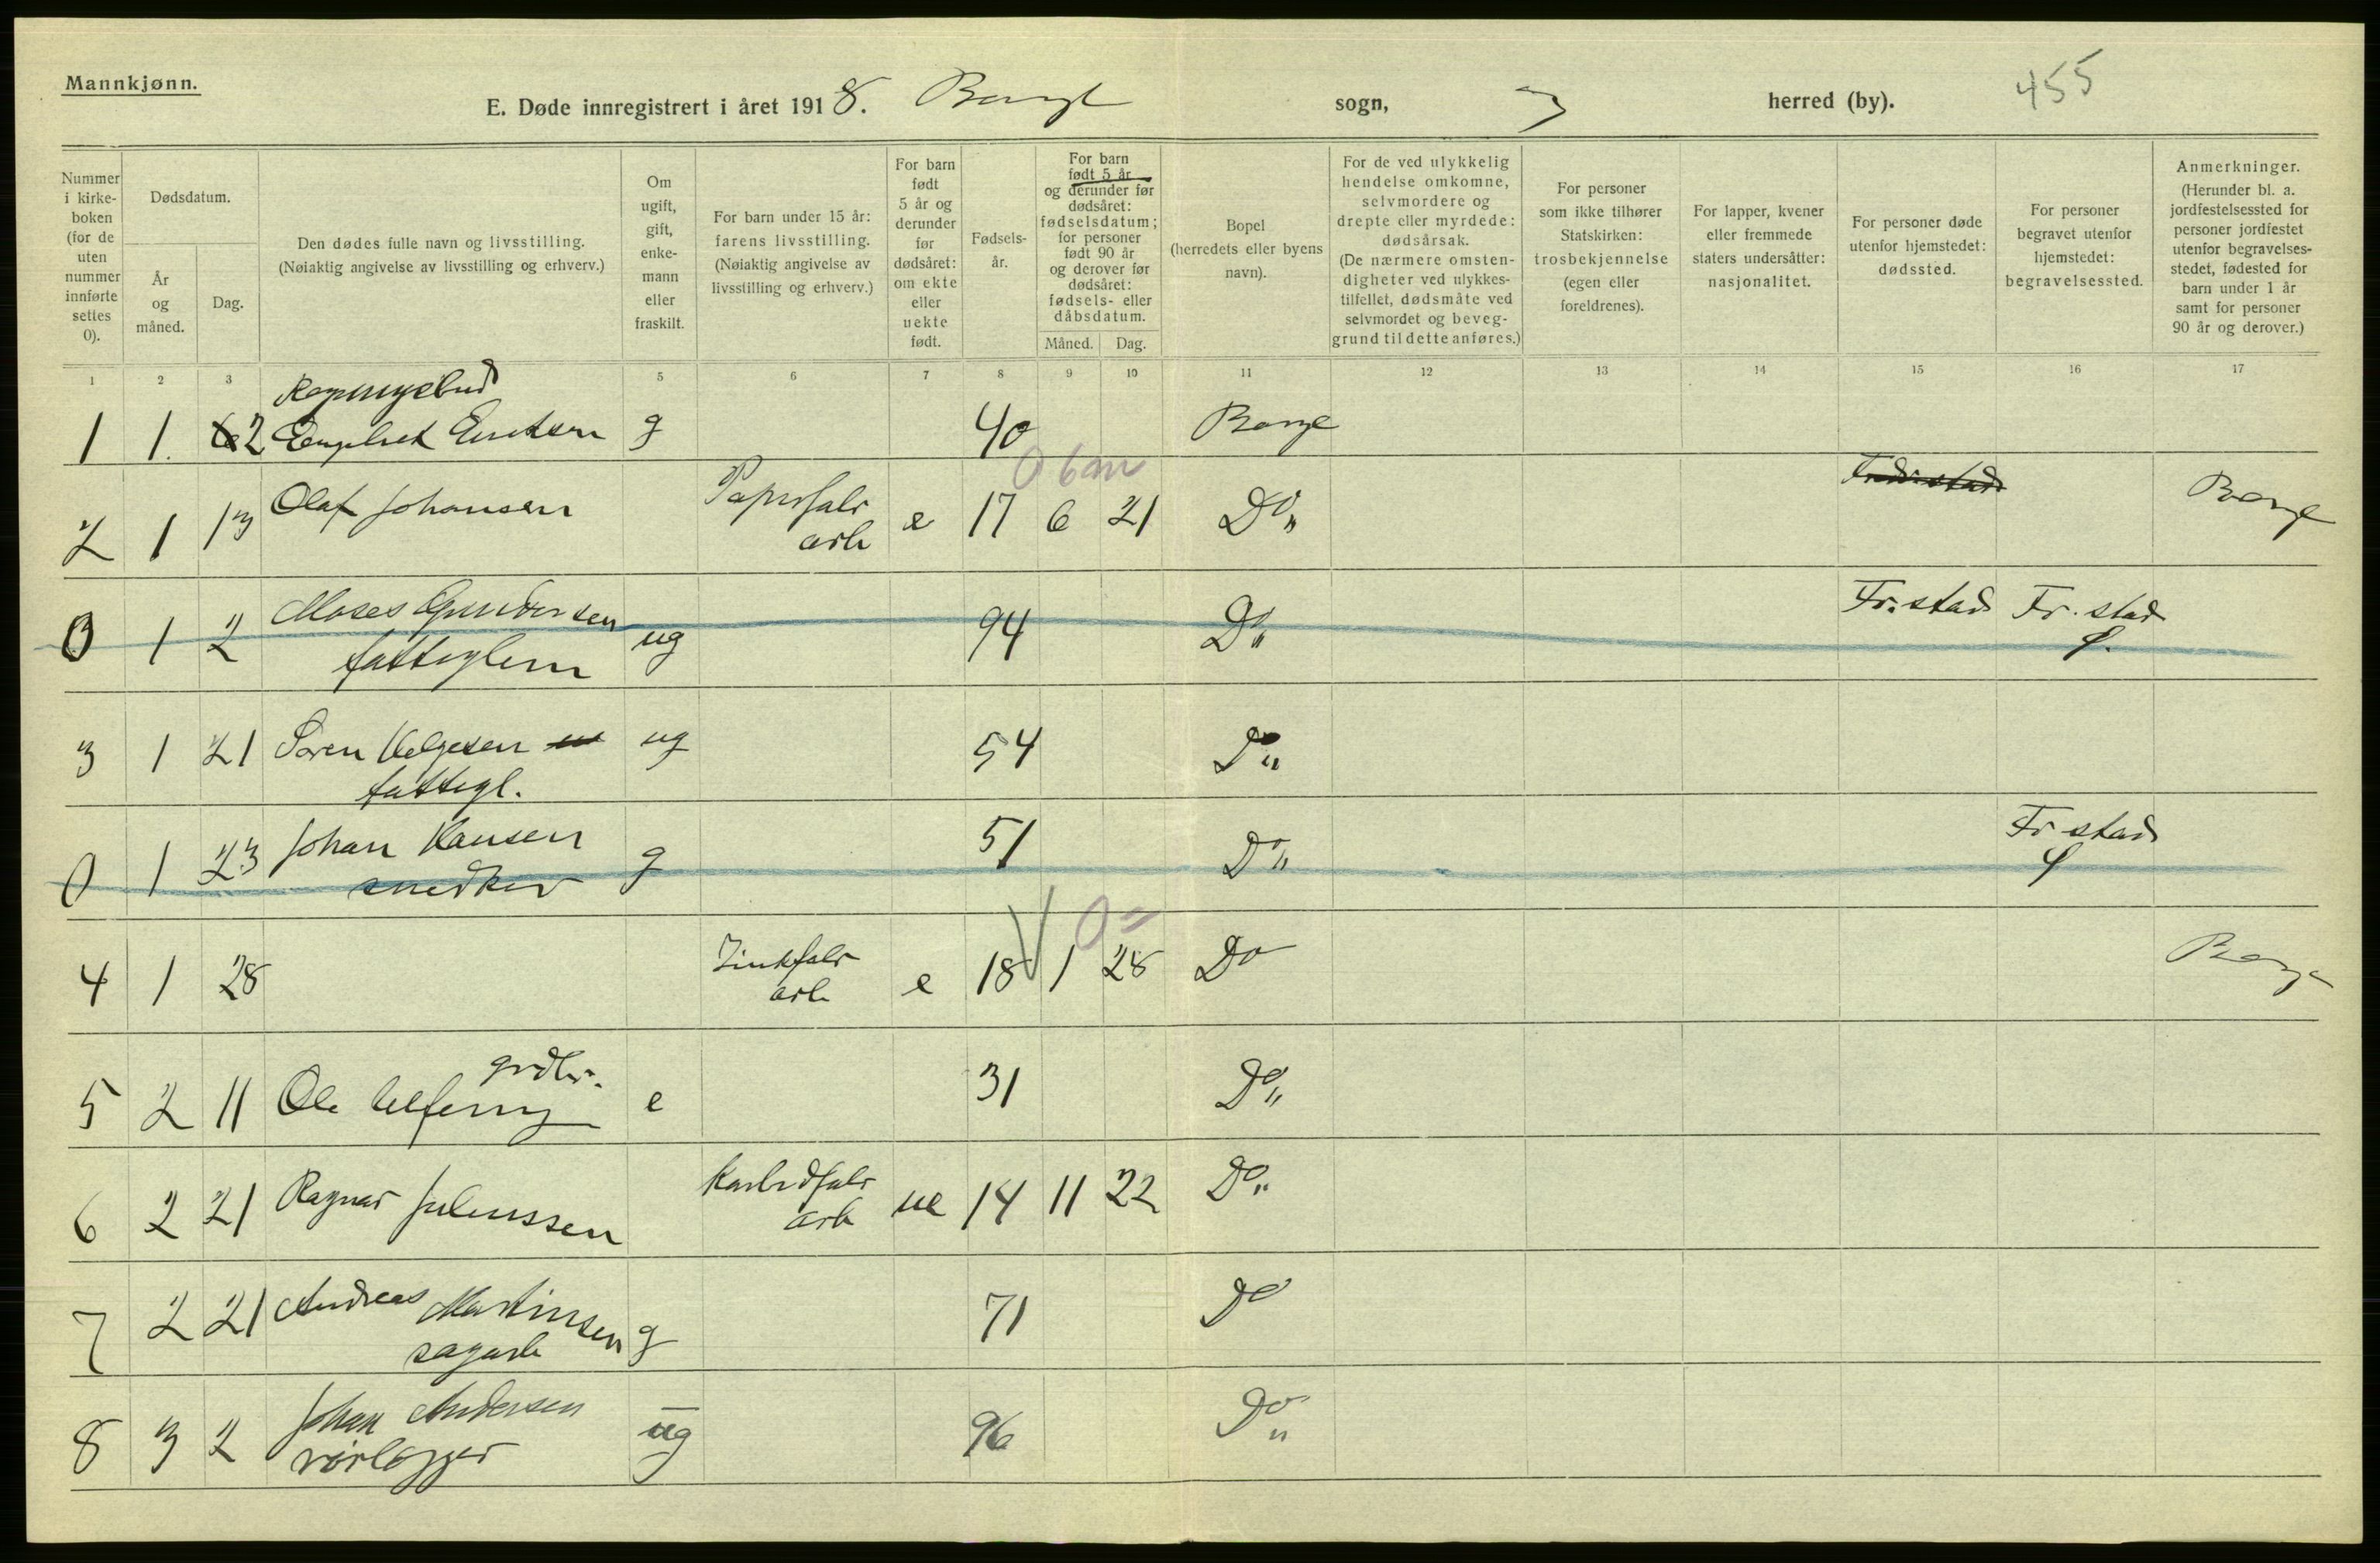 Mannkjønn.
E. Døde innregistrert i året 1918. Borge sogn, herred (by). 455
Nummer
i kirke-
boken
(for de
uten
nummer
innførte
settes
0).
Dødsdatum.
År
og
måned.
Dag.
Den dødes fulle navn og livsstilling.
(Nøiaktig angivelse av livsstilling og erhverv.)
Om
ugift,
gift,
enke-
mann
eller
fraskilt.
For barn under 15 år:
farens livsstilling.
(Nøiaktig angivelse av
livsstilling og erhverv.)
For barn
født
5 år og
derunder
før
dødsåret:
om ekte
eller
uekte
født.
Fødsels-
år.
For barn
født 5 år
og derunder før
dødsåret:
fødselsdatum;
for personer
født 90 år
og derover før
dødsåret:
fødsels- eller
dåbsdatum.
Måned. Dag.
Bopel
(herredets eller byens
navn).
For de ved ulykkelig
hendelse omkomne,
selvmordere og
drepte eller myrdede:
dødsårsak.
(De nærmere omsten-
digheter ved ulykkes-
tilfellet, dødsmåte ved
selvmordet og beveg-
grund til dette anføres.)
For personer
som ikke tilhører
Statskirken:
trosbekjennelse
(egen eller
foreldrenes).
For lapper, kvener
eller fremmede
staters undersåtter:
nasjonalitet.
For personer døde
utenfor hjemstedet:
dødssted.
For personer
begravet utenfor
hjemstedet:
begravelsessted.
Anmerkninger.
(Herunder bl. a.
jordfestelsessted for
personer jordfestet
utenfor begravelses-
stedet, fødested for
barn under 1 år
samt for personer
90 år og derover.)
1 2 3 5 6 7 8 9 10 11 12 13 14 15 16 17
1 1. 2 Engebret g 40 Borge
0 6 m
2 1 13 Olaf Johansen Papirfabr arb e 17 6 21 Do„ Fredrikstad Borge
0 1 2 Moses Gundersen ug 94 Do„ Fr.stad Fr.stad
fattiglem
3 1 21 Søren Helgesen ug 54 Do„
fattigl.
0 1 23 Johan Hansen g 51 Do„ Fr stad
snedker
4 1 28 Zinkfabr arb e 18 1 28 Do Borge
grdbr.
5 2 11 Ole e 31 Do„
6 2 21 Ragnar Karbidfabr arb ue 14 11 22 Do„
7 2 21 Andreas Martinsen g 71 Do
sagarb
8 3 2 Johan Andersen ug 96 Do„
rørlegger